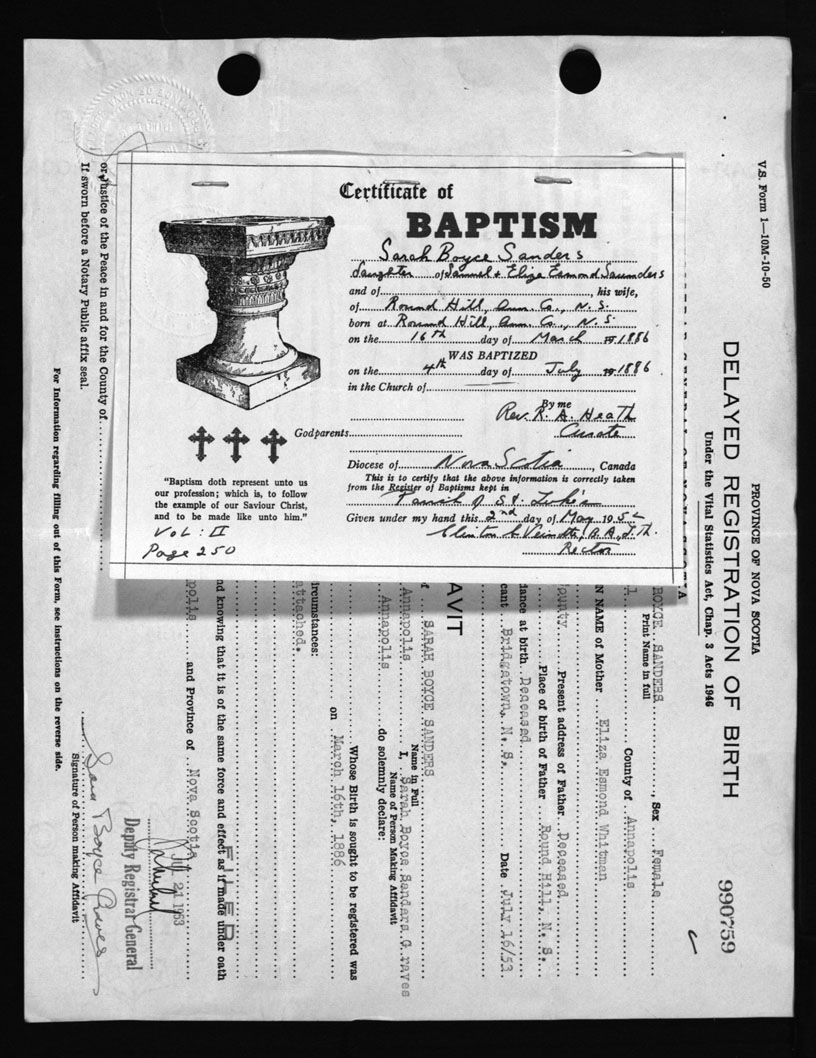 Certificate of
BAPTISM
Sarah Boyce Sanders
daughter of Samuel & Eliza Esmond Saunders
and of , his wife,
of Round Hill, Ann. Co., N. S.
born at Round Hill, Ann. Co., N. S.
on the 16th day of March 1886
WAS BAPTIZED
on the 4th day of July 1886
in the Church of
By me
Rev. R. A. Heath
Curate
Godparents
Diocese of Nova Scotia , Canada
This is to certify that the above information is correctly taken
from the Register of Baptisms kept in
Parish of St. Luke's
Given under my hand this 2nd day of May 195
Rector
"Baptism doth represent unto us
our profession; which is, to follow
the example of our Saviour Christ,
and to be made like unto him."
Vol: II
Page 250
V.S. Form 1—10M-10-50
PROVINCE OF NOVA SCOTIA
DELAYED REGISTRATION OF BIRTH
990759
Under the Vital Statistics Act, Chap. 3 Acts 1946
BOYCE SANDERS , Sex Female
Print Name in full
County of Annapolis
N NAME of Mother Eliza Esmond Whitman
ounty Present address of Father Deceased
Place of birth of Father Round Hill, N. S.
dance at birth Deceased
cant Bridgetown, N. S. Date July 16/53
AVIT
f SARAH BOYCE SANDERS
Name in Full
Annapolis I, Sarah Boyce Sanders Graves
Name of Person Making Affidavit
Annapolis do solemnly declare:
Whose Birth is sought to be registered was
on March 16th, 1886
ircumstances:
attached.
nd knowing that it is of the same force and effect as if made under oath
FILED
polis and Province of Nova Scotia
JUL 21 1953
Deputy Registrar General
Sara Boyce Graves
Signature of Person making Affidavit
or Justice of the Peace in and for the County of
If sworn before a Notary Public affix seal.
For Information regarding filling out of this Form, see instructions on the reverse side.